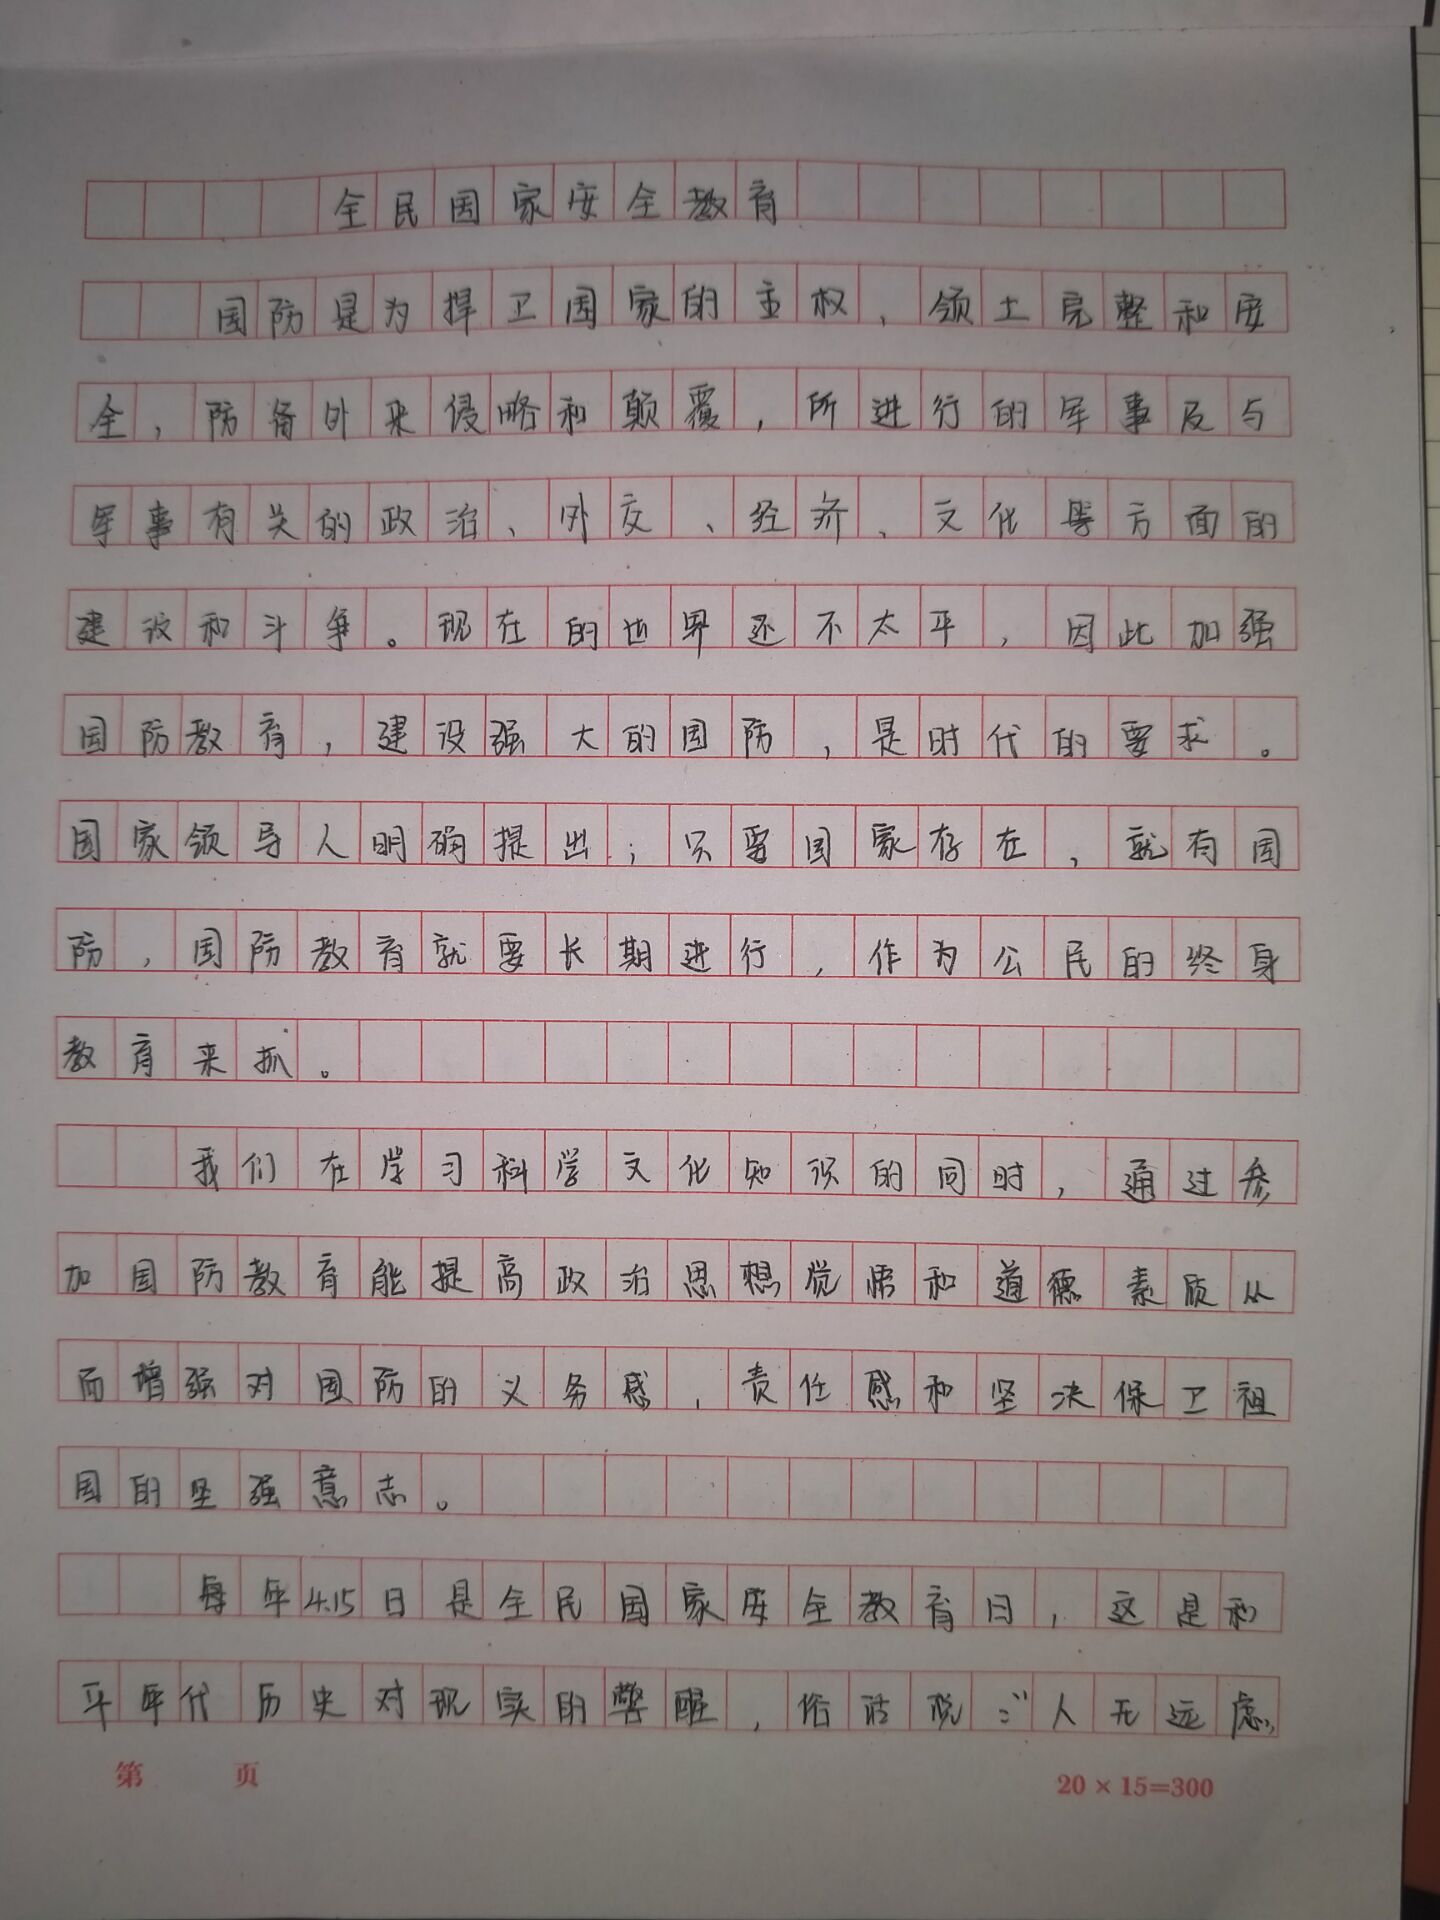 全民国家安全教育
国防是为捍卫国家的主权、领土完整和安
全，防备外来侵略和颠覆，所进行的军事及与
军事有关的政治、外交、经济、文化等方面的
建设和斗争。现在的世界还不太平，因此加强
国防教育，建设强大的国防，是时代的要求。
国家领导人明确提出；只要国家存在，就有国
防，国防教育就要长期进行，作为公民的终身
教育来抓。
我们在学习科学文化知识的同时，通过参
加国防教育能提高政治思想觉悟和道德素质从
而增强对国防的义务感，责任感和坚决保卫祖
国的坚强意志。
每年4.15日是全民国家安全教育日，这是和
平年代历史对现实的警醒，俗话说："人无远虑，
第 页
20×15=300